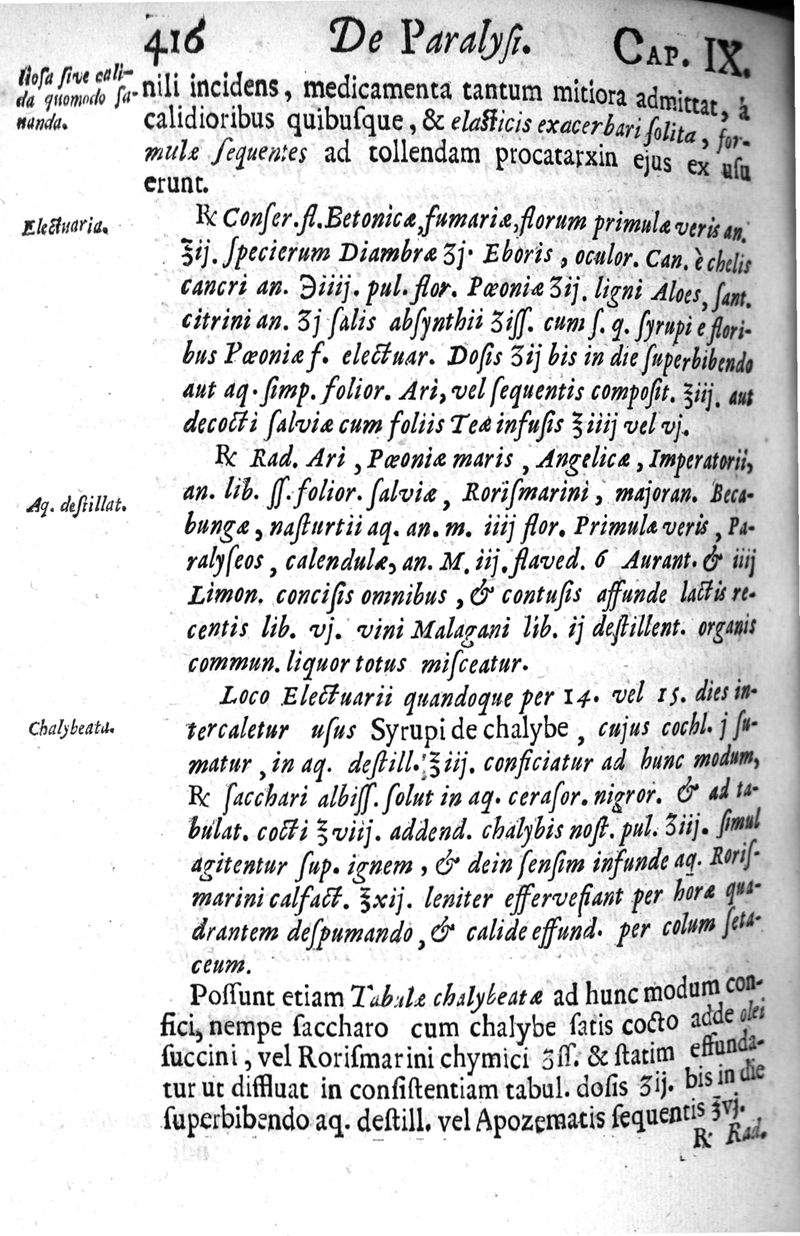 416 De Paralyſi. CAP. IX.
lioſa ſive cali-
da quomodo ſa-
nanda.
nili incidens, medicamenta tantum mitiora admittat, à
calidioribus quibuſque, & elaſticis exacerbari ſolita, for-
mulæ ſequentes ad tollendam procatarxin ejus ex uſu
erunt.
Electuaria.
℞ Conſer. fl. Betonicæ, fumariæ, florum primulæ veris an.
℥ij. ſpecierum Diambræ ʒj. Eboris, oculor. Can. è chelis
cancri an. ℈iiij. pul. flor. Pœoniæ ʒij. ligni Aloes, ſant.
citrini an. ʒj ſalis abſynthii ʒiſſ. cum ſ. q. ſyrupi e flori-
bus Pœoniæ f. electuar. Doſis ʒij bis in die ſuperbibendo
aut aq. ſimp. folior. Ari, vel ſequentis compoſit. ℥iij. aut
decocti ſalviæ cum foliis Teæ infuſis ℥iiij vel vj.
Aq. deſtillat.
℞ Rad. Ari, Pœoniæ maris, Angelicæ, Imperatorii,
an. lib. ſſ. folior. ſalviæ, Roriſmarini, majoran. Beca-
bungæ, naſturtii aq. an. m. iiij flor. Primulæ veris, Pa-
ralyſeos, calendulæ, an. M. iij. flaved. 6 Aurant. & iiij
Limon. conciſis omnibus, & contuſis affunde lactis re-
centis lib. vj. vini Malagani lib. ij deſtillent. organis
commun. liquor totus miſceatur.
Chalybeata.
Loco Electuarii quandoque per 14. vel 15. dies in-
tercaletur uſus Syrupi de chalybe, cujus cochl. j ſu-
matur, in aq. deſtill. ℥iij. conficiatur ad hunc modum,
℞ ſacchari albiſſ. ſolut in aq. ceraſor. nigror. & ad ta-
bulat. cocti ℥viij. addend. chalybis noſt. pul. ʒiij. ſimul
agitentur ſup. ignem, & dein ſenſim infunde aq. Roriſ-
marini calfact. ℥xij. leniter efferveſiant per horæ qua-
drantem deſpumando, & calide effund. per colum ſeta-
ceum.
Poſſunt etiam Tabulæ chalybeatæ ad hunc modum con-
fici, nempe ſaccharo cum chalybe ſatis cocto adde olei
ſuccini, vel Roriſmarini chymici ʒſſ. & ſtatim effunda-
tur ut diffluat in conſiſtentiam tabul. doſis ʒij. bis in die
ſuperbibendo aq. deſtill. vel Apozematis ſequentis ℥vj.
℞ Rad.